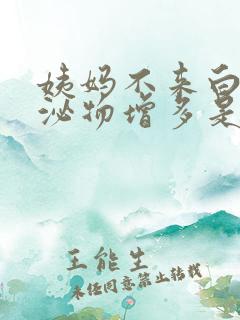 姨妈不来白
泌物增多是
王能生
未经同意禁止转载